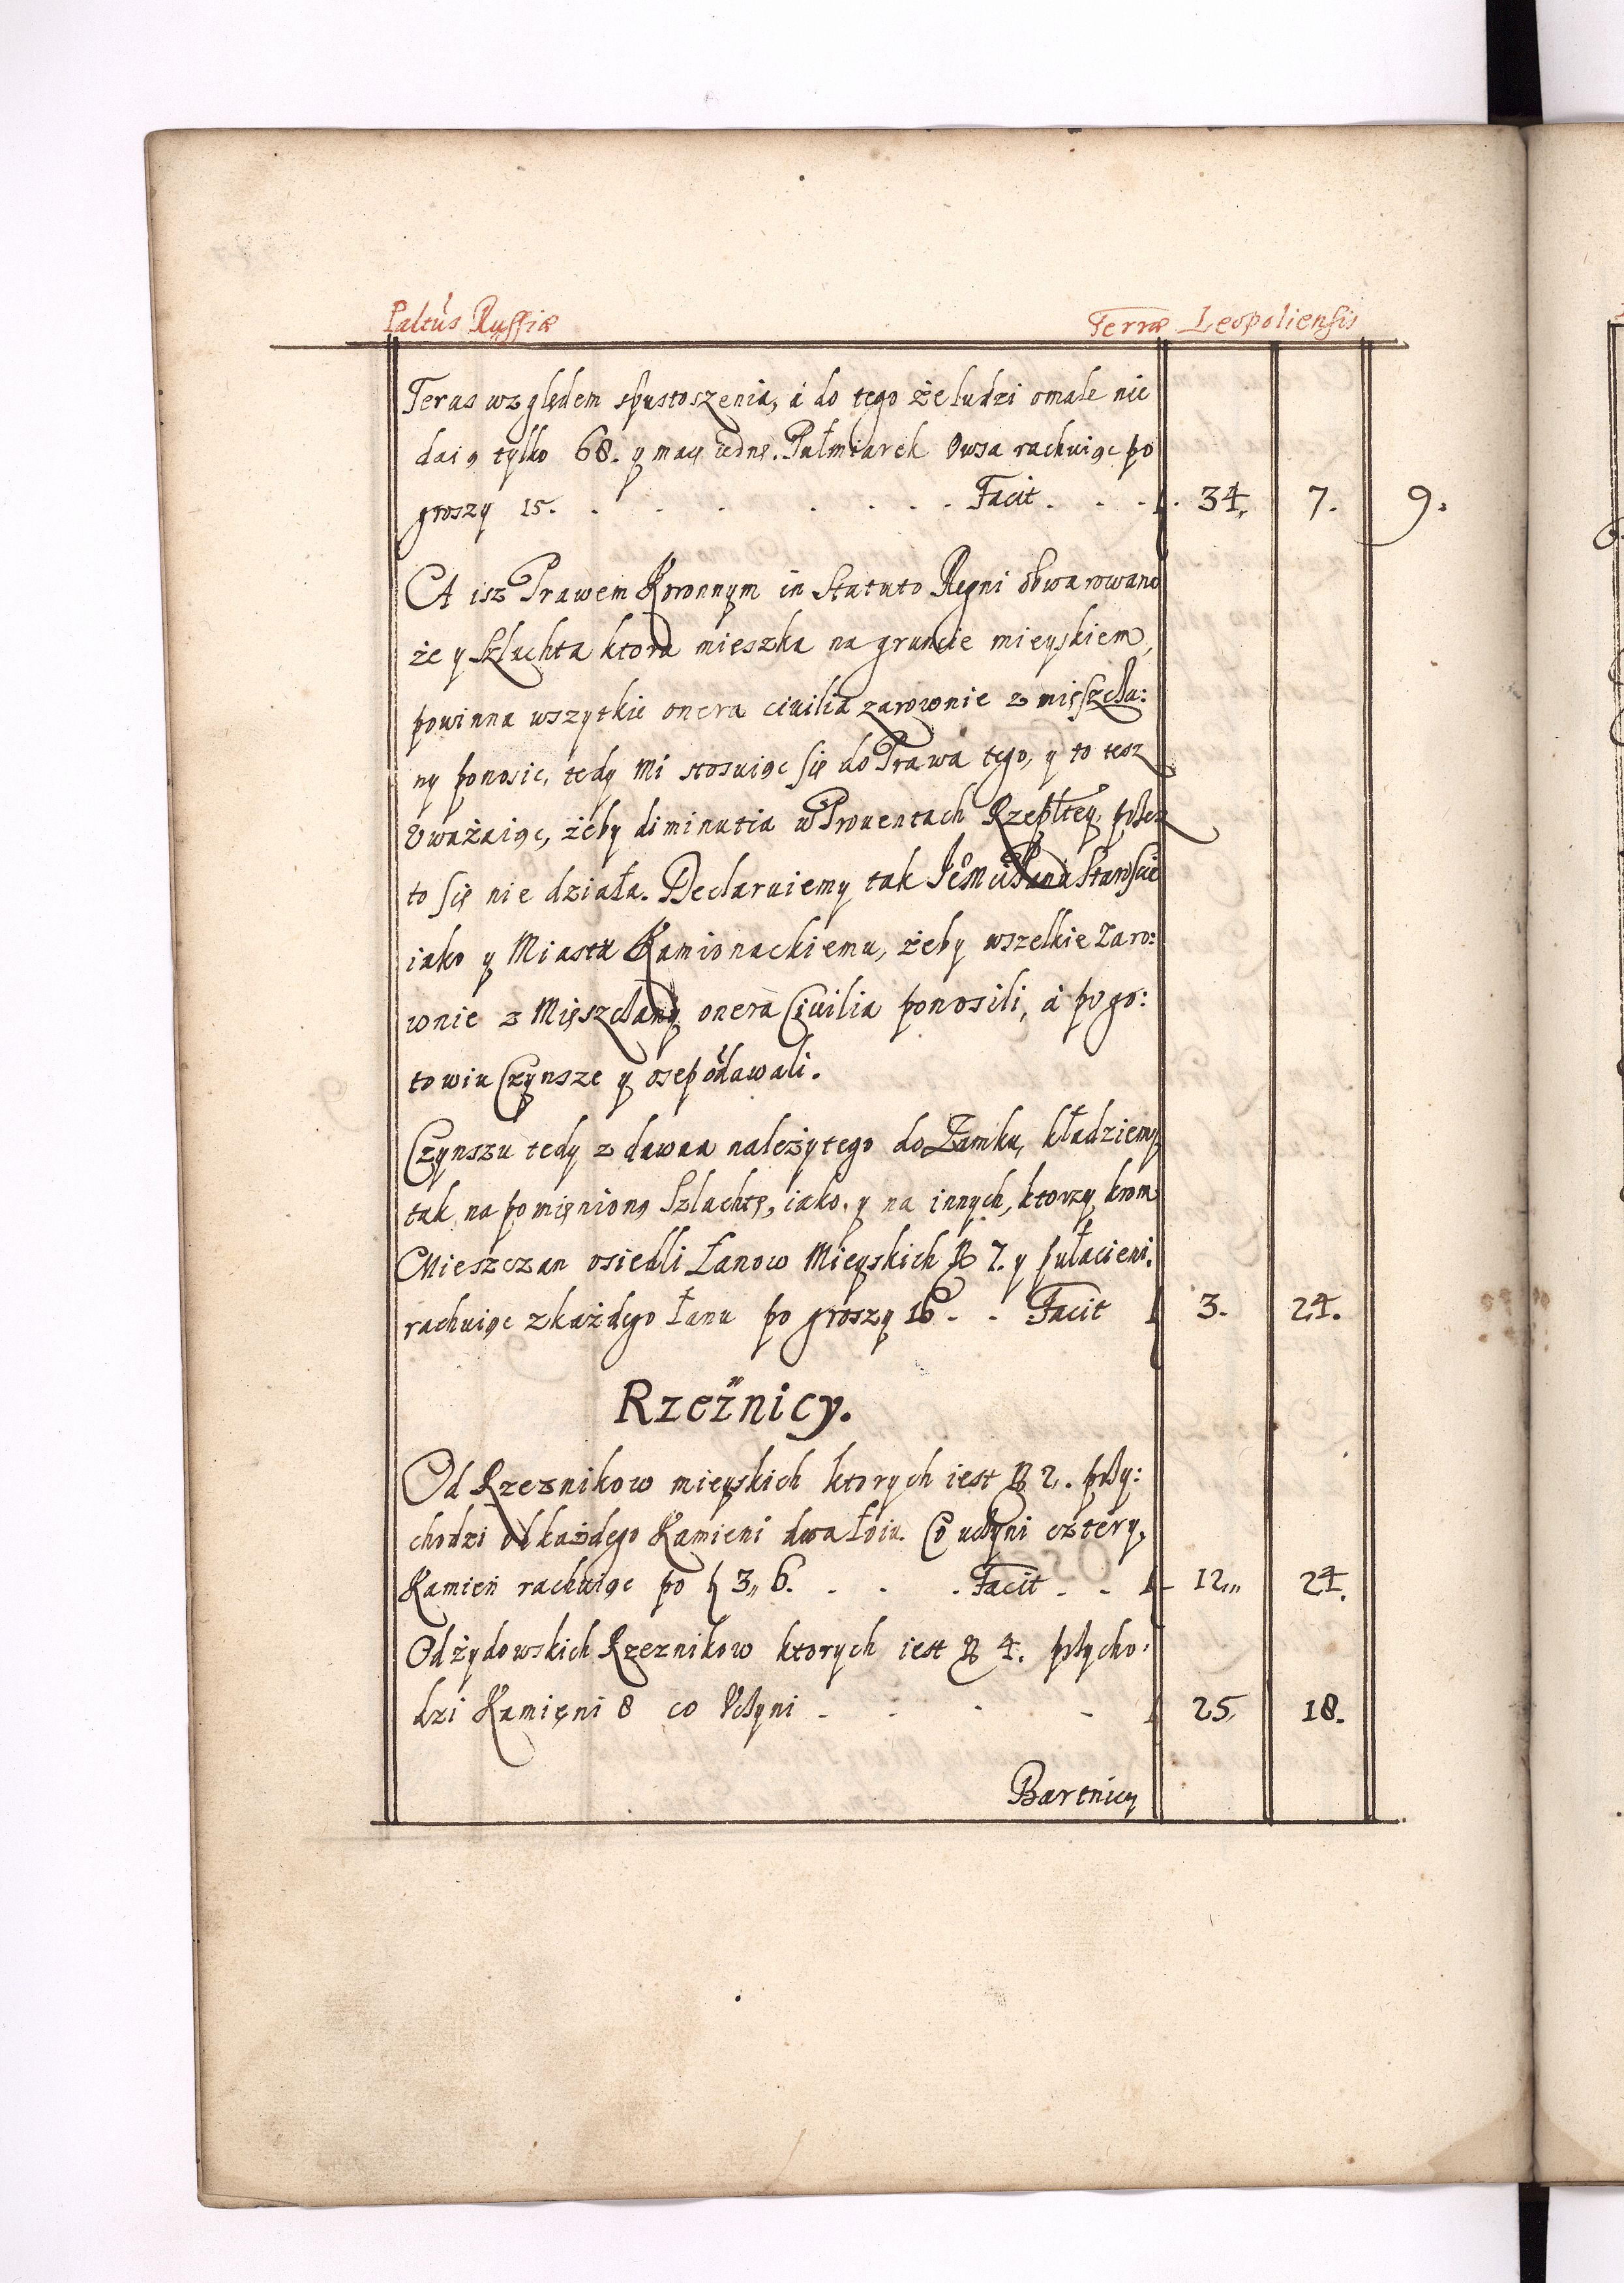 Paltus Russiæ Terræ Leopoliensis
Teras względem spustoszenia, á do tego że ludzi omale nie
daią tylko 68. y macę iednę. Pułmiarek Owsa rachuiąc po
groszy 15. Facit 34. 7. 9.
A isz Prawem Koronnym in Statuto Regni obwarowano
że y Szlachta ktora mieszka na gruncie mieyskiem,
powinna wszytkie onera ciuilia zarowonie z mięszcza:
ny ponosic, tedy Mi stosuiąc się do Prawa tego, y to tesz
Uważaiąc, żeby diminutia w Prouentach Rzepłtey przez
to się nie działa. Declaruiemy tak JeoMci Panu Staroscie
iako y Miastu Kamionackiemu, żeby wszelkie Zaro:
wnie z Mięszczany onera Civilia ponosili, á pogo:
towiu Czynsze y osep oddawali.
Czynszu tedy z dawna należytego do Zamku, kładziemy
tak na pomięnioną Szlachtę, iako y na innych, ktorzy krom
Mieszczan osiedli Łanow Mieyskich N 7. y pułacieni.
rachuiąc z każdego Łanu po groszy 16 Facit 3. 24.
Rzeżnicy.
Od Rzeznikow mieyskich ktorych iest N 2. przy:
chodzi od każdego Kamieni dwa Łoiu. Co uczyni cztery.
Kamień rachuiąc po f 3„ 6. Facit 12„ 24.
Od żydowskich Rzeznikow ktorych iest N 4. przycho:
dzi Kamięni 8 co Uczyni 25, 18.
Bartnicy